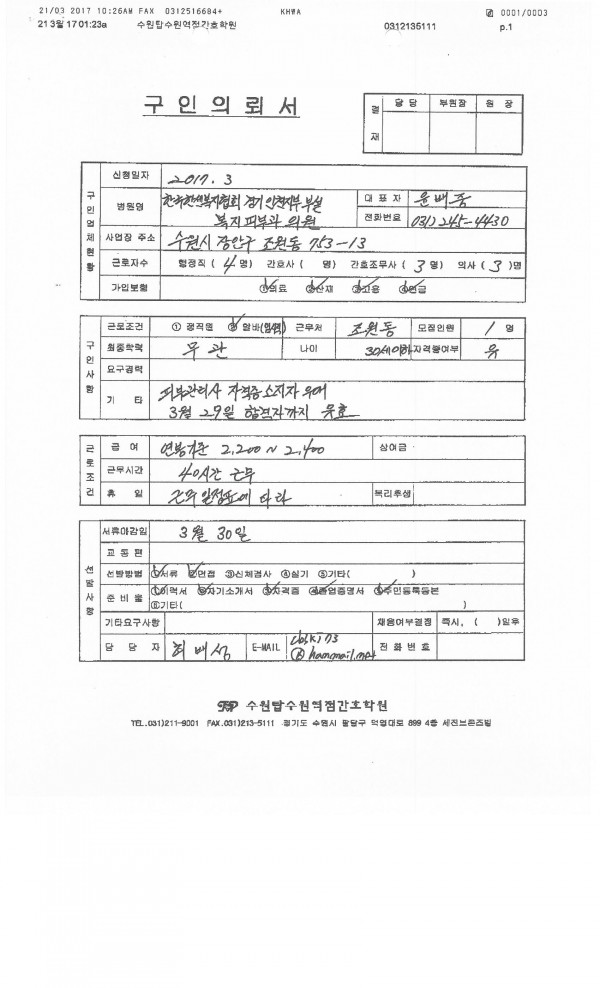 21/03 2017 10:26AM FAX 0312516684+ KHWA 0001/0003
21 3월 17 01:23a 수원탑수원역점간호학원 0312135111 p.1
구 인 의 뢰 서
결재 담 당 부원장 원 장
구인업체현황
신청일자 2017. 3
병원명 한국한센복지협회 경기인천지부 부설 복지피부과 의원
대 표 자 윤배중
전화번호 031) 245-4430
사업장 주소 수원시 장안구 조원동 753-13
근로자수 행정직 ( 4 명) 간호사 ( 명) 간호조무사 ( 3 명) 의사 ( 3 )명
가입보험 ①의료 ②산재 ③고용 ④연금
구인사항
근로조건 ① 정직원 ② 알바(임시) 근무처 조원동 모집인원 1 명
최종학력 무관 나이 30세이하 자격증여부 유
요구경력
기 타 피부관리사 자격증 소지자 우대
3월 29일 합격자까지 유효
근로조건
급 여 연봉기준 2,200 ~ 2,400 상여금
근무시간 40시간 근무
휴 일 근무일정표에 따라 복리후생
선발사항
서류마감일 3월 30일
교 통 편
선발방법 ①서류 ②면접 ③신체검사 ④실기 ⑤기타( )
준 비 물 ①이력서 ②자기소개서 ③자격증 ④졸업증명서 ⑤주민등록등본
⑥기타( )
기타요구사항 채용여부결정 즉시, ( )일후
담 당 자 최배성 E-MAIL @ hanmail.net 전 화 번 호
TOP 수원탑수원역점간호학원
TEL.031)211-9001 FAX.031)213-5111 경기도 수원시 팔달구 덕영대로 899 4층 세진브론즈빌